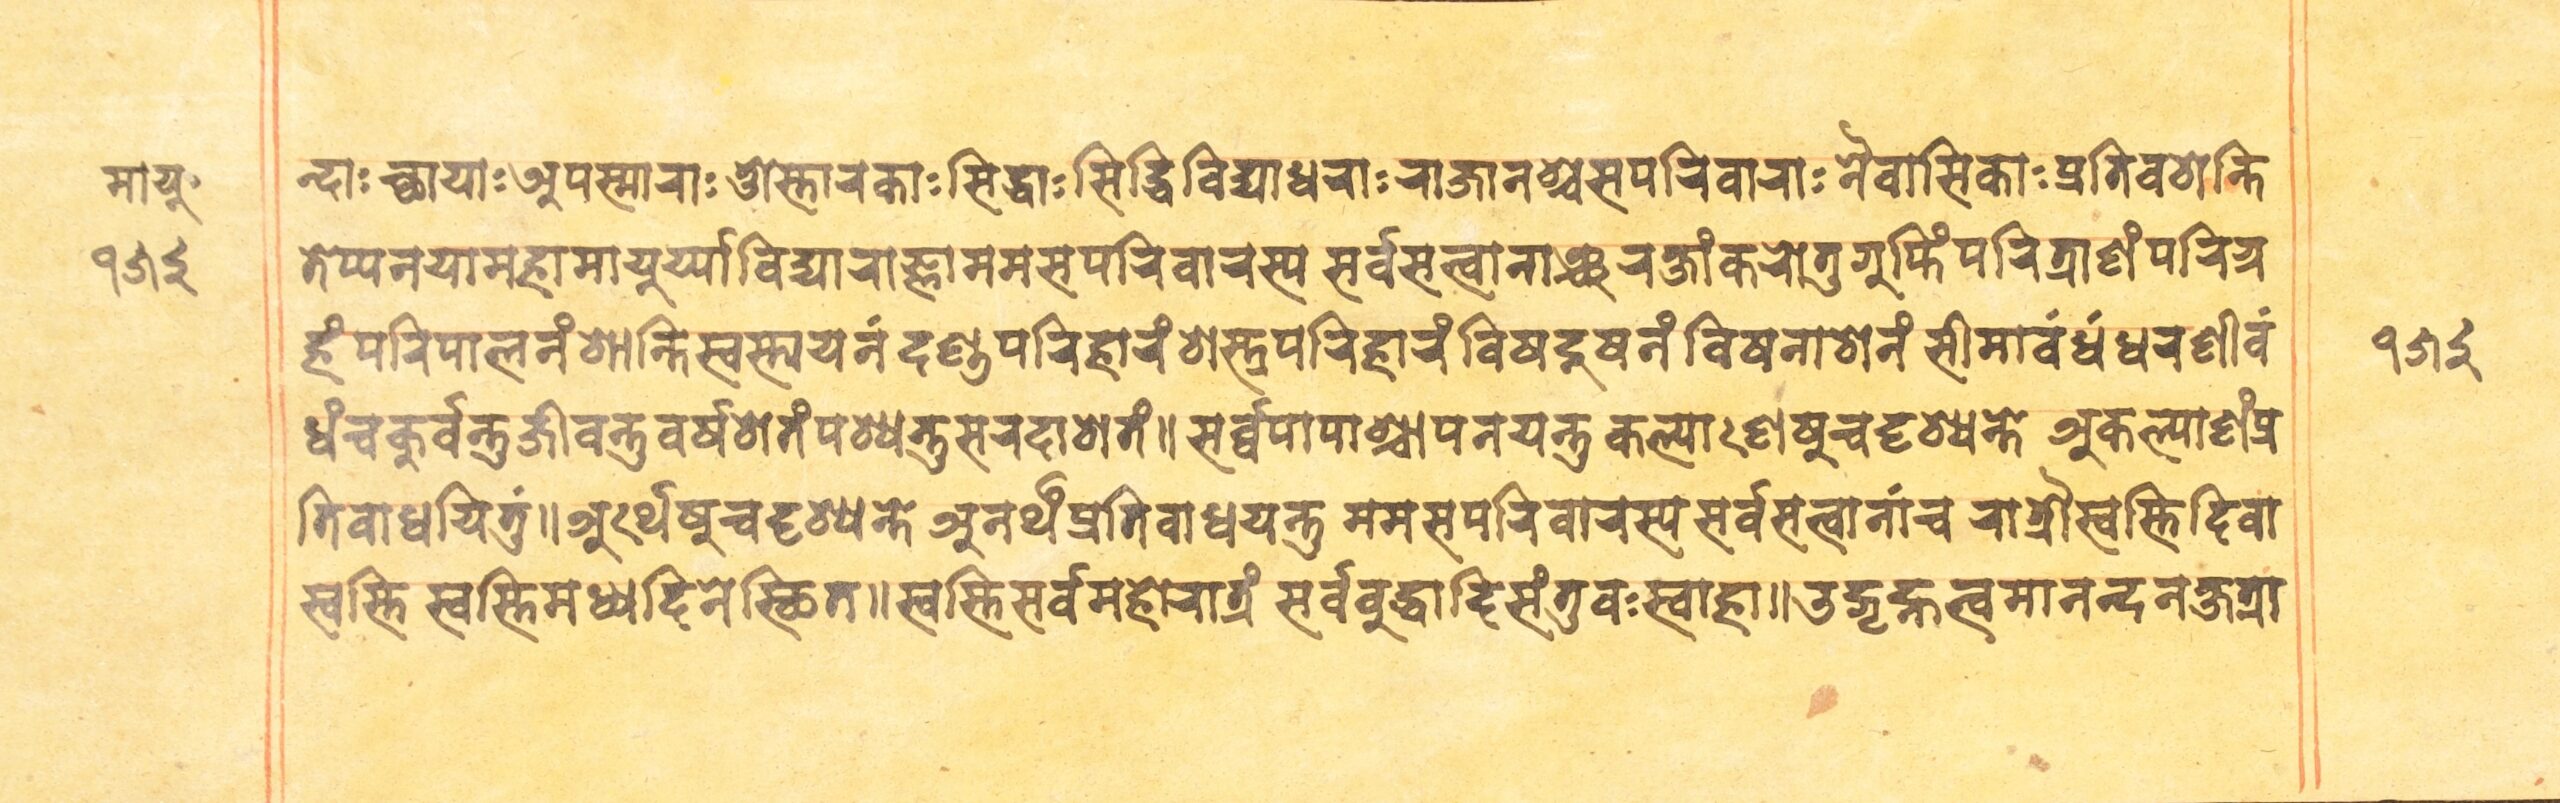 मायु॰
न्दाः च्छायाः अपस्माराः ओस्तारकाः सिद्धाः सिद्धिविद्याधराः राजानश्चसपरिवाराः नैवासिकाः प्रतिवशन्ति
तेप्यनयामहामायुर्य्याविद्याराज्ञाममसपरिवारस्य सर्वसत्वानाञ्च रक्षांकरोतु गुप्तिंपरित्राणंपरिग्र
हंपरिपालनंशान्तिस्वस्त्ययनंदण्डपरिहारंशस्त्रपरिहारंविषदुषनंविषनाशनंसीमावंधंधरणीवं
धंचकुर्वन्तुजीवन्तुवर्षशतंपश्यन्तुसरदाशतं॥ सर्व्वपापाश्चापनयन्तु कल्याणेषुचदृश्यन्ते अकल्याणंप्र
तिवाधयितुं॥ अर्थेषुचदृश्यन्ते अनर्थंप्रतिवाधयन्तु ममसपरिवारस्य सर्वसत्वानांच रात्रौस्वस्तिदिवा
स्वस्ति स्वस्तिमध्यदिनेस्छित॥ स्वस्तिसर्वमहोरात्रं सर्ववुद्धादिसंतुवःस्वाहा॥ उद्गृह्नत्वमानन्दनक्षत्रा